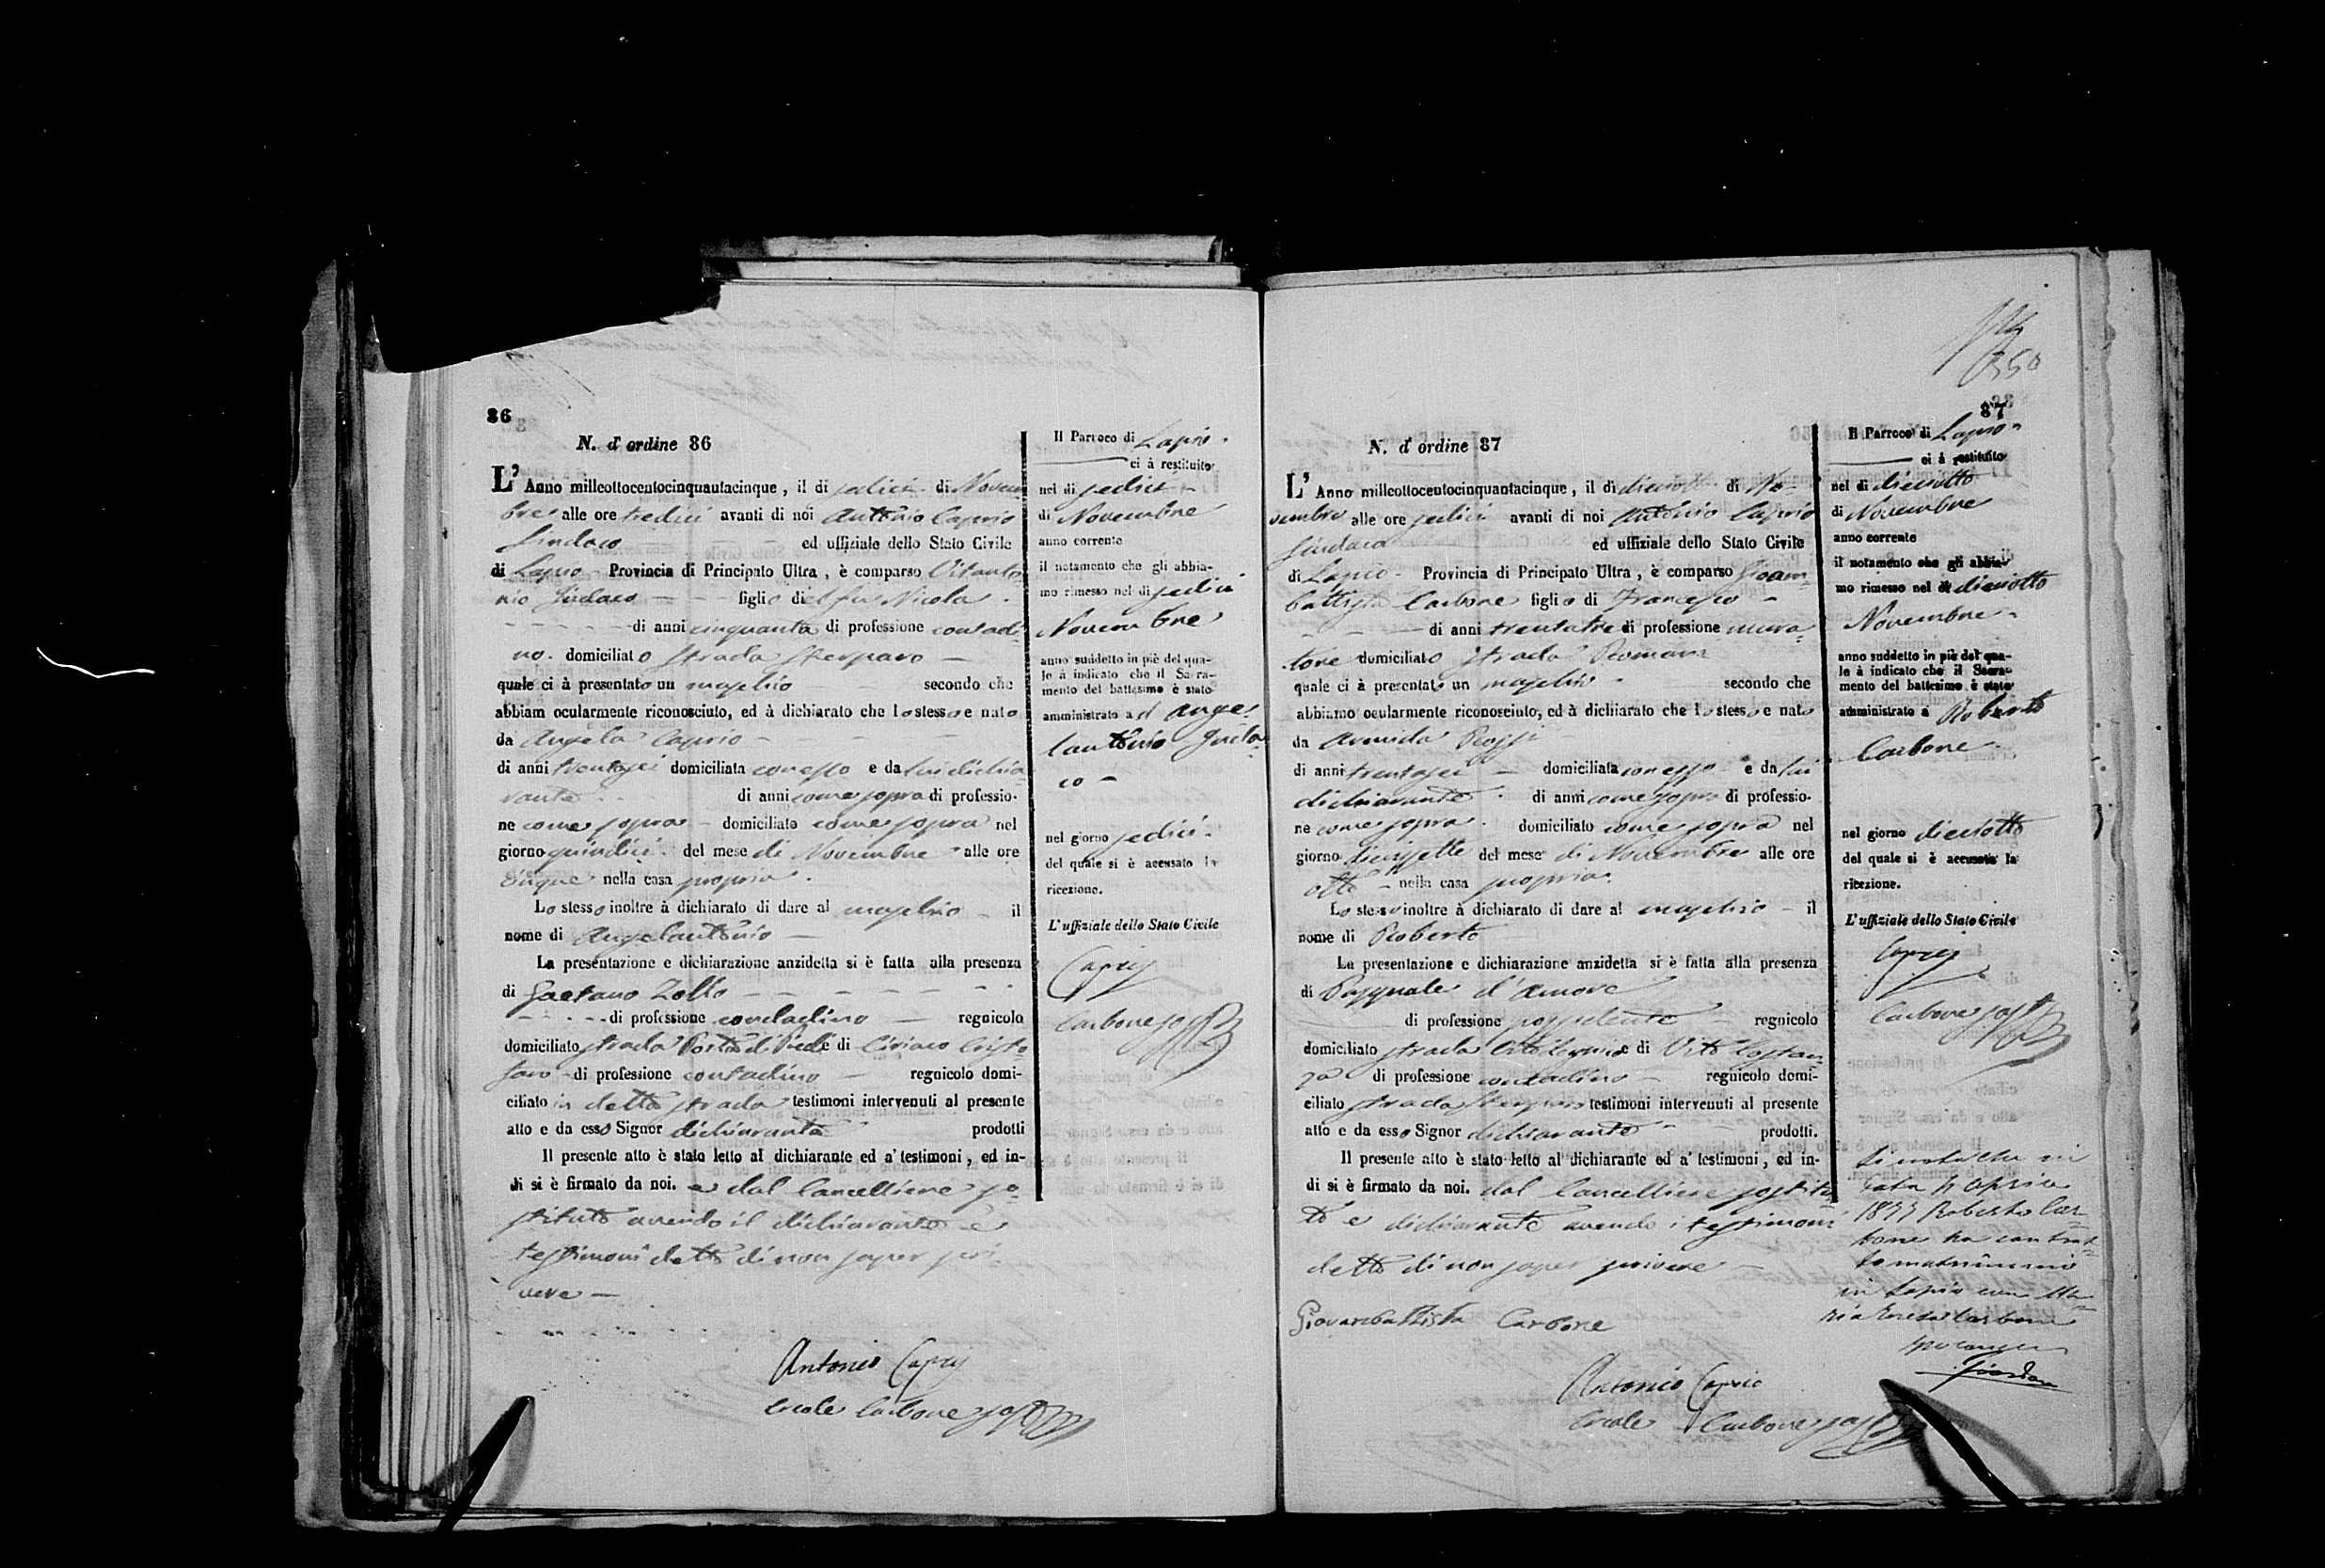 86
N. d' ordine 86
L' Anno millcottocentocinquantacinque, il di sedici di Novem
bre alle ore tredici avanti di noi Antonio Caprio
Sindaco ed uffiziale dello Stato Civile
di Lapio Provincia di Principato Ultra, è comparso Vitanto
nio figlio del fu Nicola
di anni cinquanta di professione contadi
no. domiciliato strada
quale ci à presentato un maschio secondo che
abbiam ocularmente riconosciuto, ed à dichiarato che lo stesso e nato
da Angela Caprio
di anni trentasei domiciliata con esso e da lui dichia
rante di anni come sopra di professio-
ne come sopra domiciliato come sopra nel
giorno quindici del mese di Novembre alle ore
cinque nella casa propria.
Lo stesso inoltre à dichiarato di dare al maschio il
nome di Angelantonio
La presentazione e dichiarazione anzidetta si è fatta alla presenza
di Gaetano Zollo
di professione contadino regnicolo
domiciliato strada Porta di Piedi e di Ciriaco Cristo
faro di professione contadino regnicolo domi-
ciliato in detta strada testimoni intervenuti al presente
atto e da esso Signor dichiarante prodotti
Il presente atto è stato letto al dichiarante ed a' testimoni, ed in-
di si è firmato da noi. e dal Cancelliere so-
stituto avendo il dichiarante e
testimoni detto di non saper scri
vere
Antonio Caprij
Ercole Carbone sost
Il Parroco di Lapio.
ci à restituito
nel di sedici
di Novembre
anno corrente
il notamento che gli abbia-
mo rimesso nel di sedici
Novembre
anno suddetto in piè del qua-
le à indicato che il Sacra-
mento del battesimo è stato
amministrato ad Ange-
lantonio
co
nel giorno sedici
del quale si è accusato la
ricezione.
L' uffiziale dello Stato Civile
Caprij
Carbone sost
350
87
N. d' ordine 87
L' Anno millcottocentocinquantacinque, il di dieciotto di No-
vembre alle ore sedici avanti di noi Antonio Caprio
Sindaco ed uffiziale dello Stato Civile
di Lapio Provincia di Principato Ultra, è comparso Gioam-
battista Carbone figlio di Francesco
di anni trentatre di professione mura-
tore domiciliato strada Romana
quale ci à presentato un maschio secondo che
abbiamo ocularmente riconosciuto, ed à dichiarato che lo stesso e nato
da Armida Rossi
di anni trentasei domiciliata con esso e da lui
dichiarante di anni come sopra di professio-
ne come sopra. domiciliato come sopra nel
giorno diecisette del mese di Novembre alle ore
otto nella casa propria.
Lo stesso inoltre à dichiarato di dare al maschio il
nome di Roberto
La presentazione e dichiarazione anzidetta si è fatta alla presenza
di Pasquale d'Amore
di professione possidente regnicolo
domiciliato strada e di Vito Costan-
za di professione contadino regnicolo domi-
ciliato strada testimoni intervenuti al presente
atto e da esso Signor dichiarante prodotti.
Il presente atto è stato letto al dichiarante ed a' testimoni, ed in-
di si è firmato da noi. dal Cancelliere sostitu-
to e dichiarante avendo i testimoni
detto di non saper scrivere
Giovanbattista Carbone
Antonio Caprio
Ercole Carbone sost
Il Parroco di Lapio
ci à restituito
nel di dieciotto
di Novembre
anno corrente
il notamento che gli abbia-
mo rimesso nel di dieciotto
Novembre
anno suddetto in piè del qua-
le à indicato che il Sacra-
mento del battesimo è stato
amministrato a Roberto
Carbone
nel giorno dieciotto
del quale si è accusata la
ricezione.
L' uffiziale dello Stato Civile
Caprij
Carbone sost
Si nota che in
data aprile
Roberto Car-
bone ha contrat-
to matrimonio
in Lapio con Ma-
ria Carbone